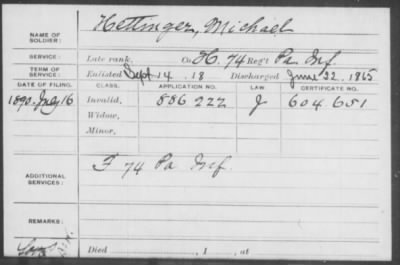 NAME OF SOLDIER: Hettinger, Michael
SERVICE: Late rank, Co H. 74 Reg't Pa. Inf.
TERM OF SERVICE: Enlisted Sept. 14 .18 Discharged June 22. 1865
DATE OF FILING. CLASS. APPLICATION NO. LAW. CERTIFICATE NO.
1890. July 16 Invalid, 886 222 J 604.651
Widow,
Minor,
ADDITIONAL SERVICES: F 74 Pa Inf.
REMARKS:
Died , 1 , at